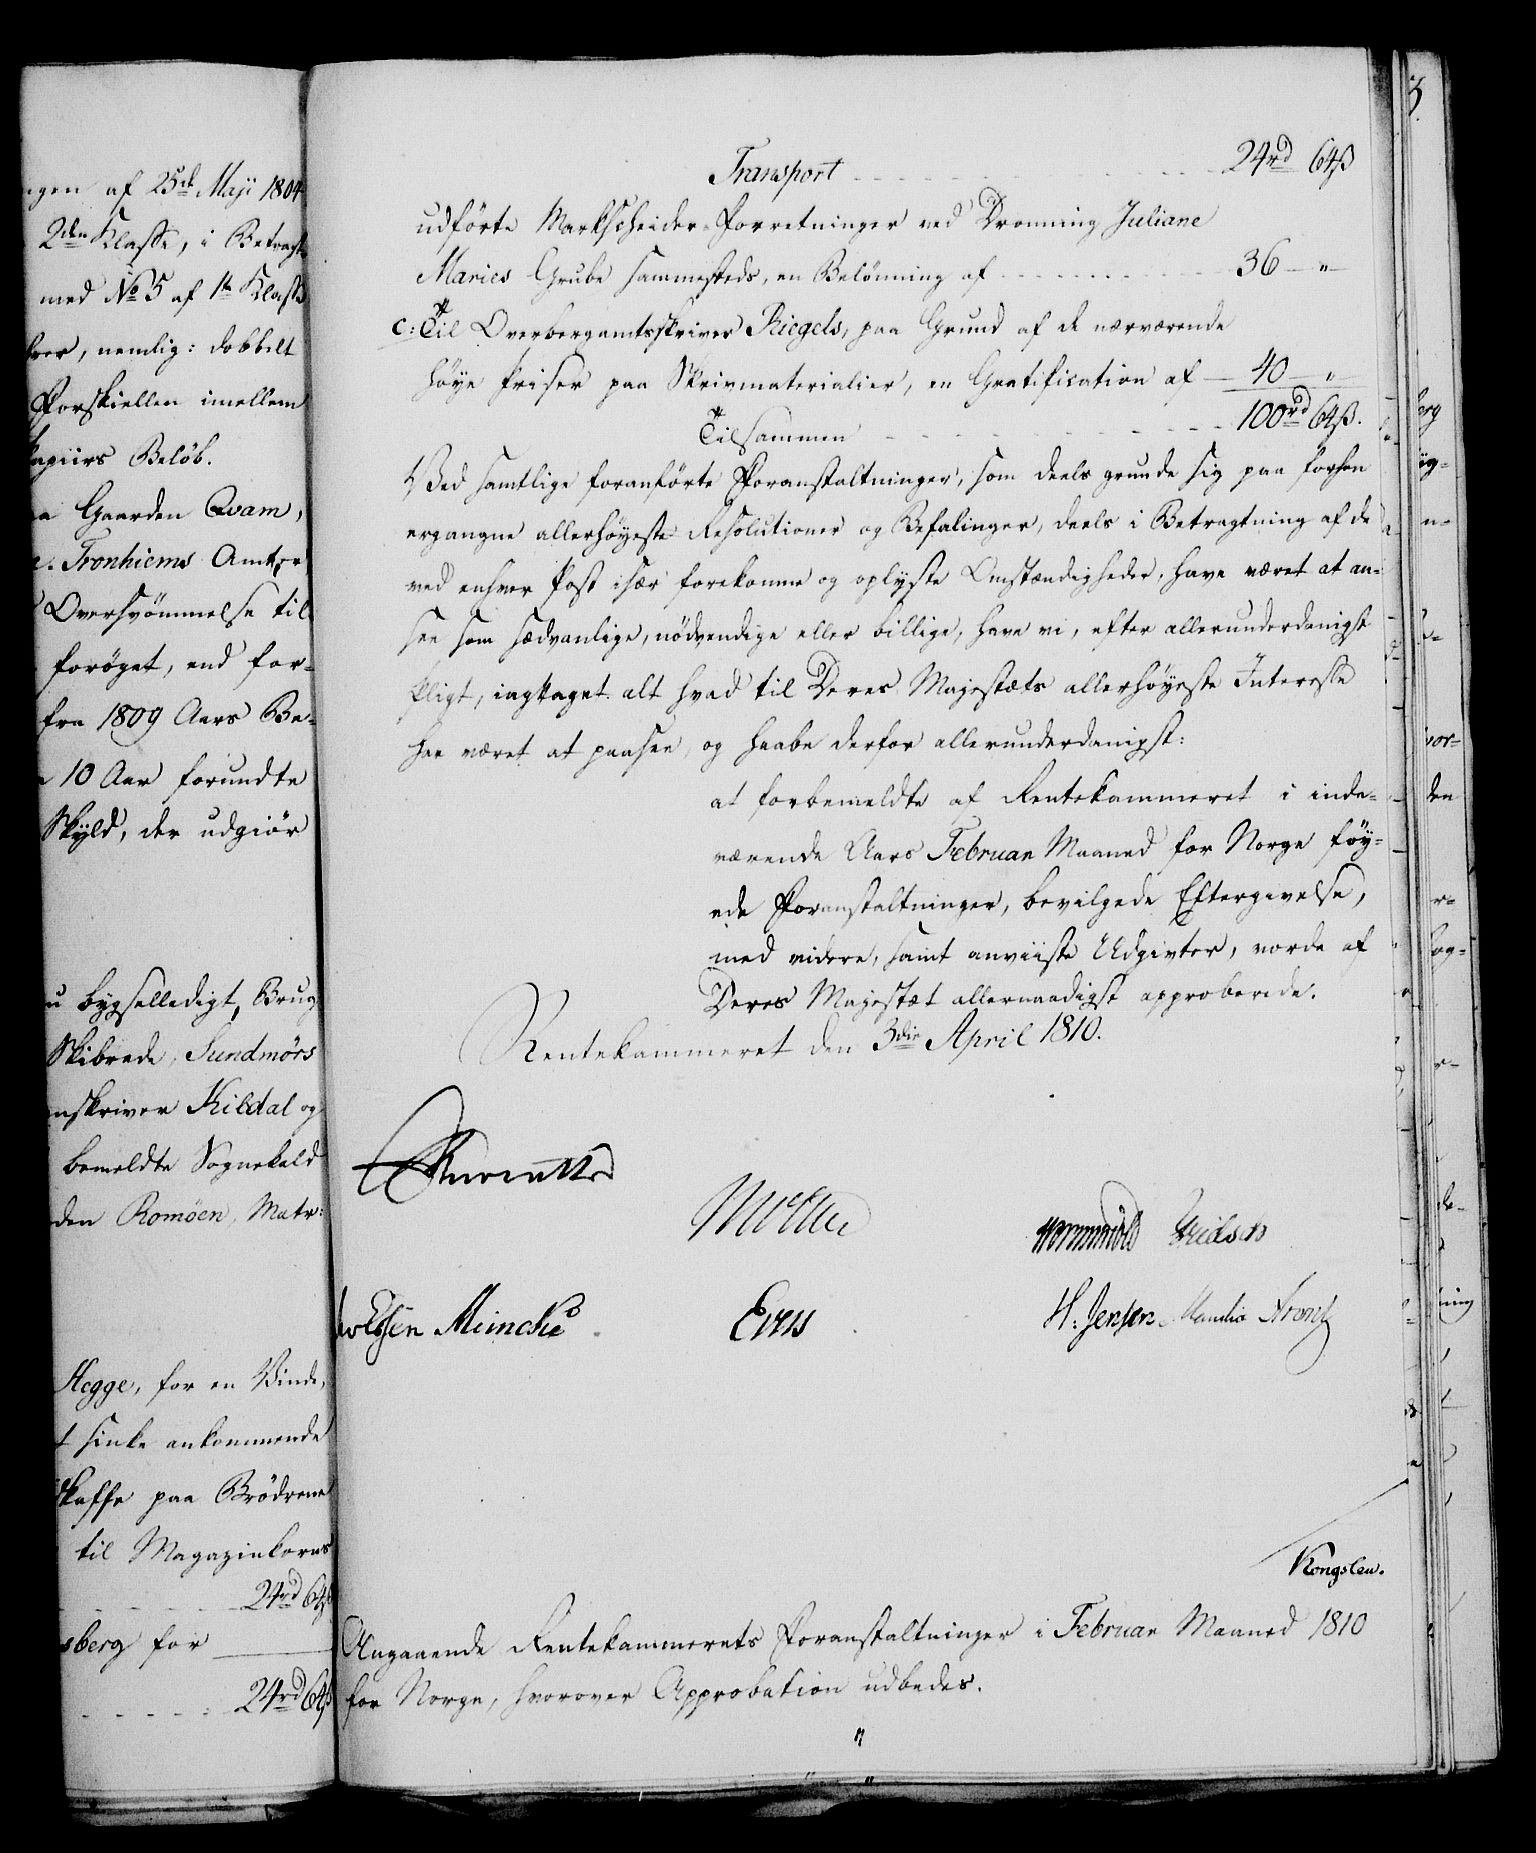 ngen af 25de Maji 1804
2den Klasse, i Betragt
med No 5 af 1te Klasse
nemlig: dobbelt
Forskiellen imellem
Beløb.
Gaarden Qvam,
Tronhiems Amt, er
Oversvømmelse til
forøget, end for-
fra 1809 Aars Be-
10 Aar forundte
Skyld, der udgiør
bygselledigt, Brug
Skibrede, Sundmørs
nskriver Kildal og
bemeldte Sognekald
den Romöen, Matr:
Hegge, for en Vinde,
sinke ankommende
skaffe paa Brødrene
til Magazinkorns
24rd 64ß
sberg for
24rd 64ß
Transport 24rd 64ß
udførte Markscheider-Forretninger ved Dronning Juliane
Maries Grube sammesteds, en Belønning af 36 "
c: Til Overbergamtsskriver Riegels, paa Grund af de nærværende
høye Priser paa Skrivmaterialier, en Gratification af 40 "
Tilsammen 100rd 64ß.
Ved samtlige foranførte Foranstaltninger, som deels grunde sig paa forhen
ergangne allerhøyeste Resolutioner og Befalinger, deels i Betragtning af de
ved enhver Post især forekomne og oplyste Omstændigheder, have været at an-
see som sædvanlige, nødvendige eller billige, have vi, efter allerunderdanigst
Pligt, iagttaget alt hvad til Deres Majestæts allerhøyeste Interesse
har været at paasee, og haabe derfor allerunderdanigst:
at forbemeldte af Rentekammeret i inde-
værende Aars Februar Maaned for Norge føy-
ede Foranstaltninger, bevilgede Eftergivelse,
med videre, samt anviiste Udgivter, vorde af
Deres Majestæt allernaadigst approberede.
Rentekammeret den 3die April 1810.
Møller
Wormskiold Fridsch
Meincke Evers H: Jensen Manthei
Kongslew.
Angaaende Rentekammerets Foranstaltninger i Februar Maaned 1810
for Norge, hvorover Approbation udbedes.